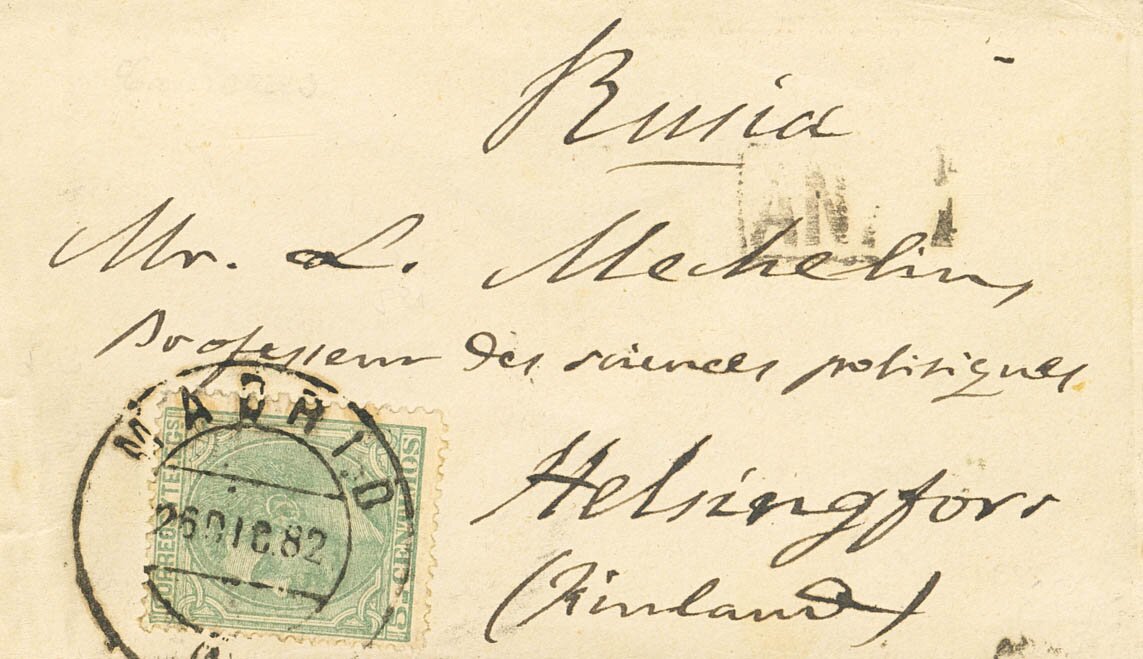 Rusia
AN
Mr. L. Mechelin,
Professeur des sciences politiques
MADRID
CORREOS Y TELEGS
5 CENTIMOS
26 DIC. 82
Helsingfors
(Finland)